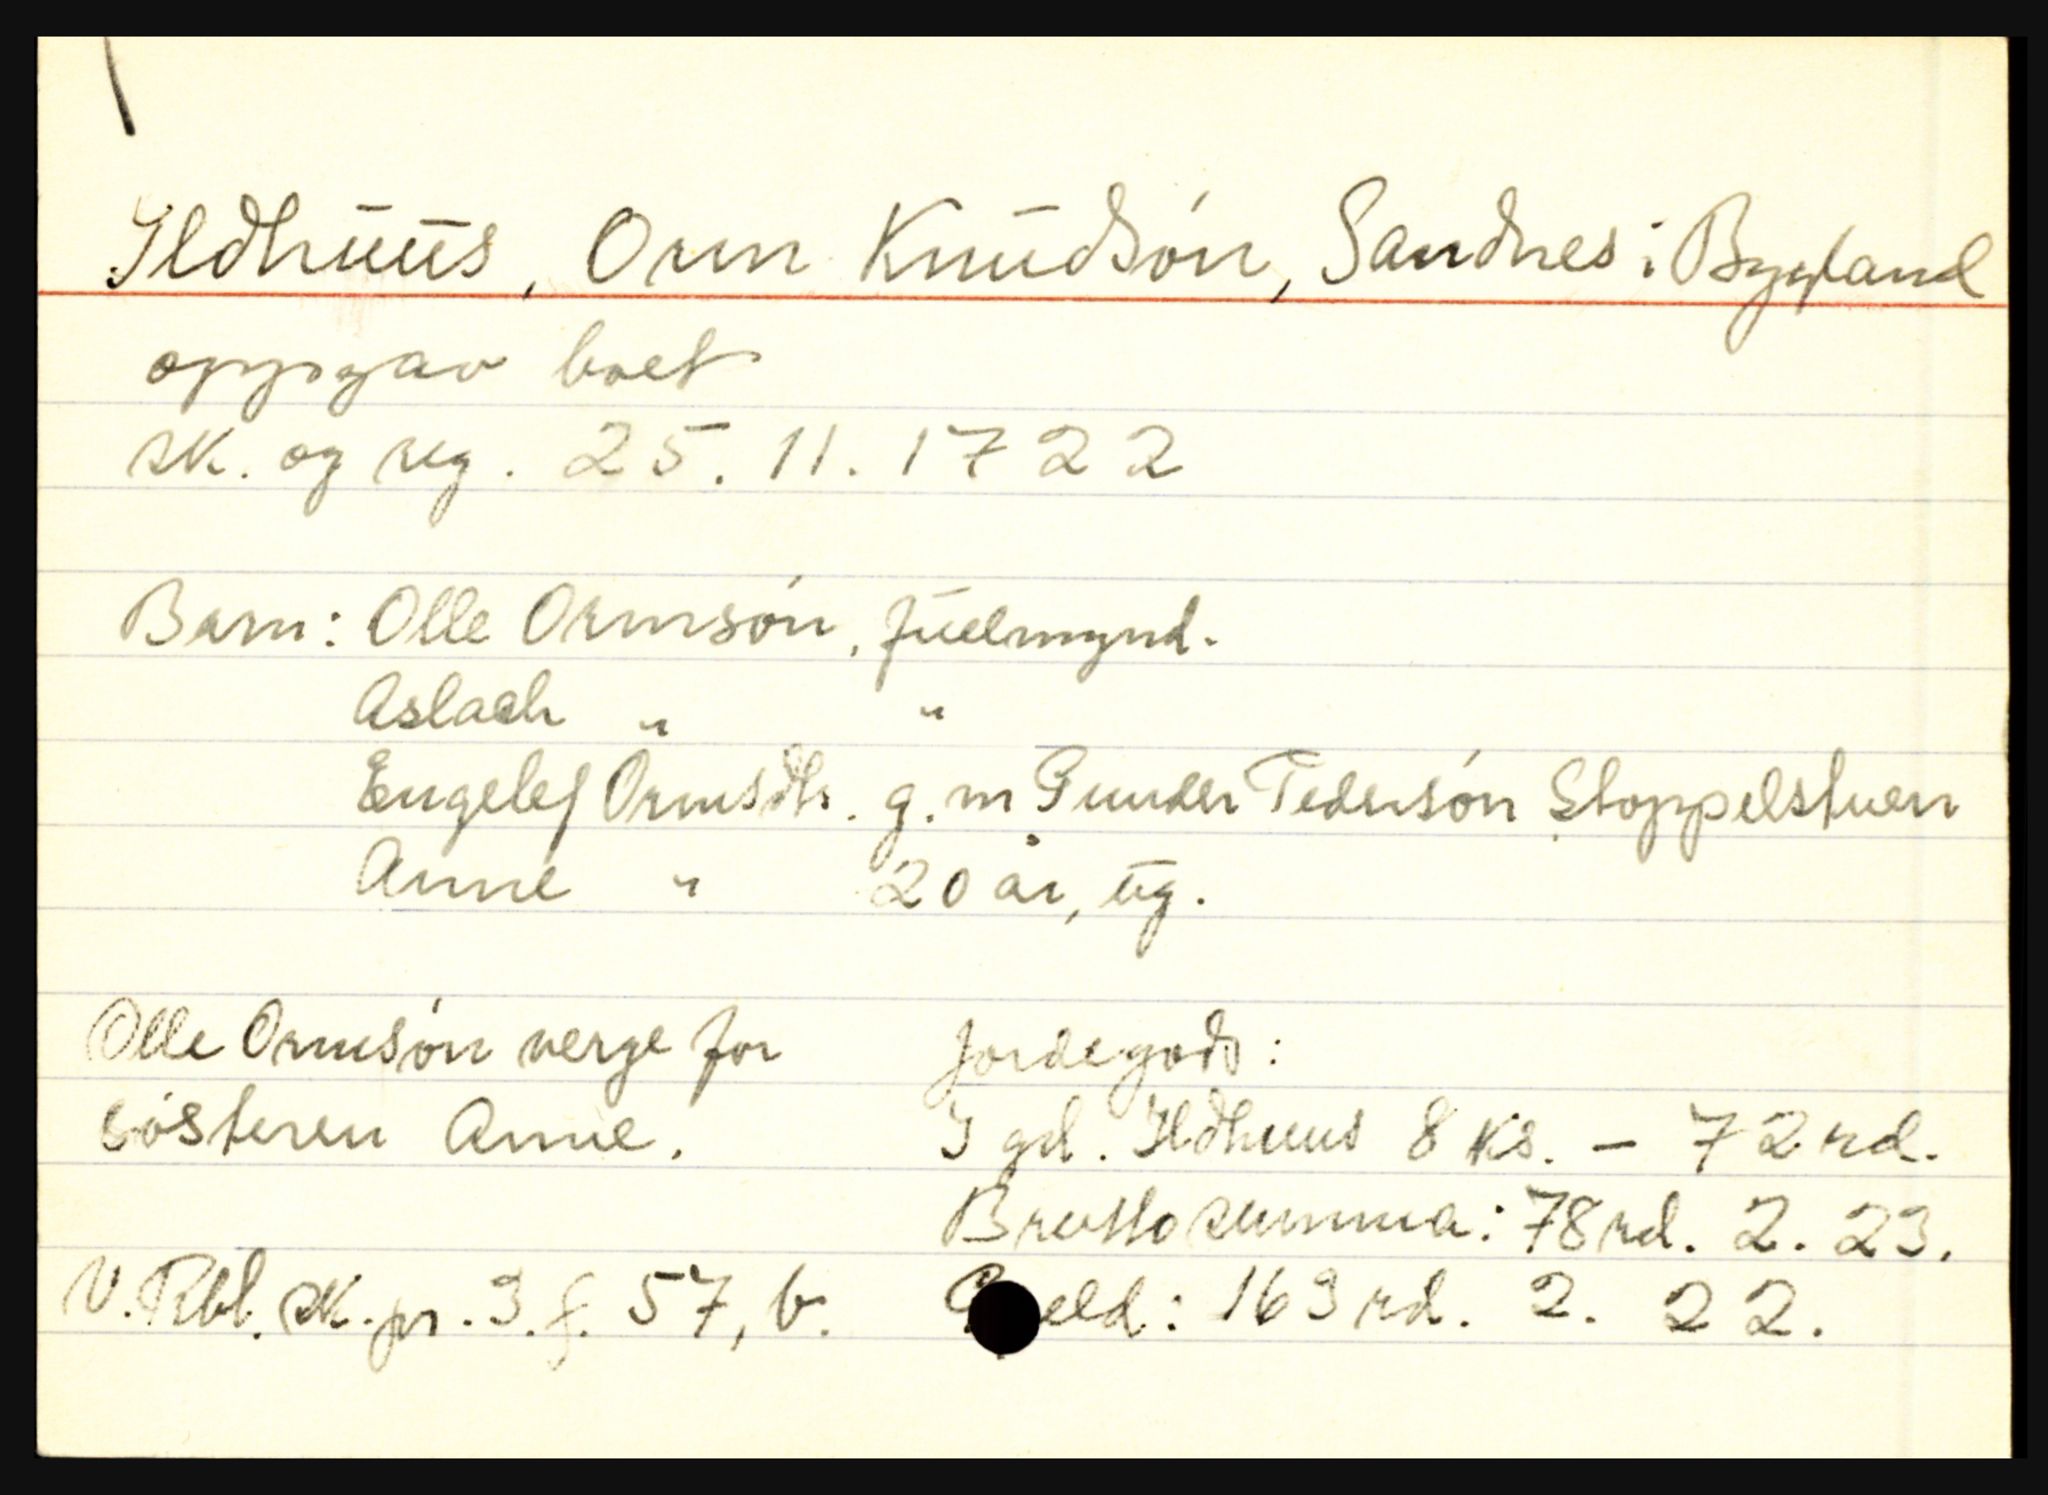 Ildhuus, Orm Knudsón, Sandnes i Bygland
oppgav boet
sk. og reg. 25. 11. 1722
Barn: Olle Ormsón, fuldmynd.
Aslach " "
Engelef Ormsdtr. g. m Gunder Pedersón Stoppelstuen
Anne " 20 år, ug.
Olle Ormsón verge for
sósteren Anne.
Jordegods:
I gd. Ildhuus 8 ks. - 72 rd.
Brutto summa: 78 rd. 2. 23.
Gjeld: 163 rd. 2. 22.
V. Rbl. sk. pr. 3. f. 57, b.